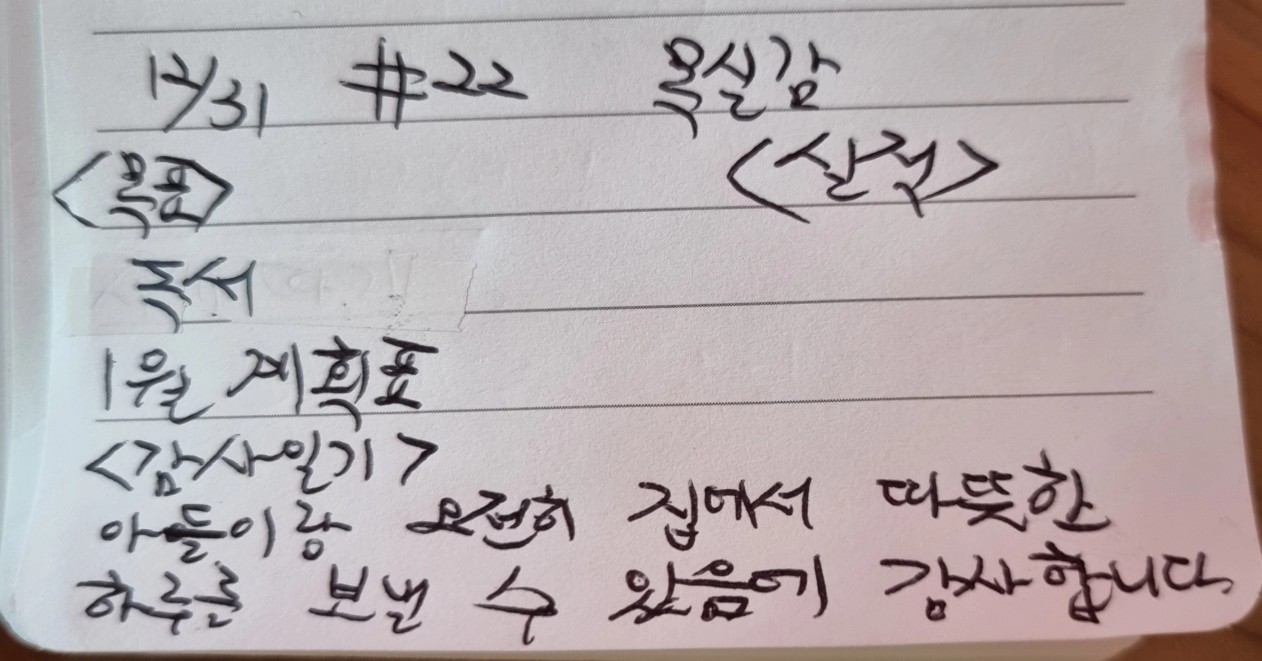 12/31 #22 목실감
<목표> <실적>
독서
1월 계획표
<감사일기>
아들이랑 집에서 따뜻한
하루를 보낼 수 있음에 감사합니다.